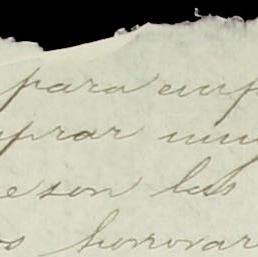 para emp
prar mu
eson las
os honorar